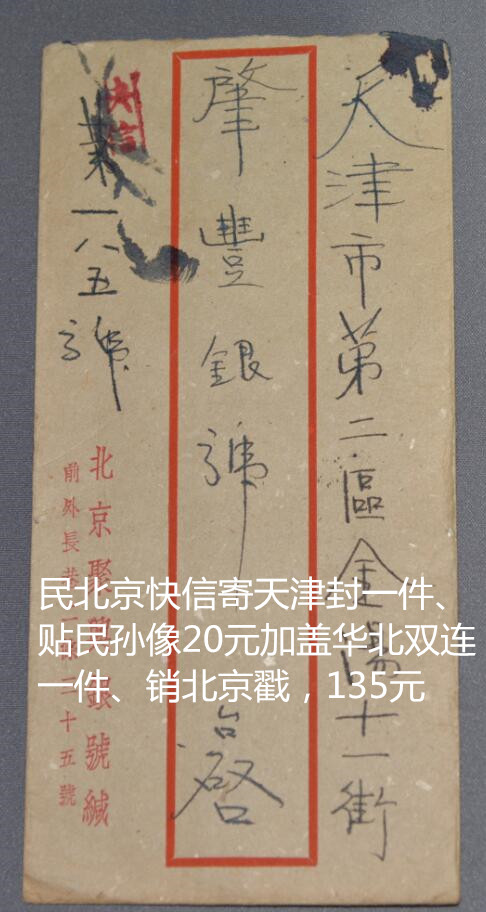 天津市第二區金湯十一街
肇豐銀號台啓
快信
一八五號
北京聚銀號緘
前外長巷條三十五號
民北京快信寄天津封一件、
贴民孙像20元加盖华北双连
一件、销北京戳，135元